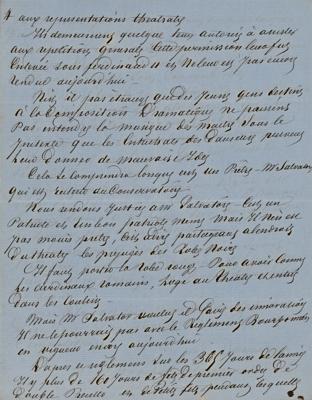 4 aux representations theatrales
Ils demeurent quelque tems autorisé à assister
aux repetitions generales Cette permission leur fut
Enlevée sous ferdinand II et Ne leur est pas encore
rendue aujourd'hui
N'est il pas etrange que des Jeunes gens destinés
à la Composition Dramatique ne puissent
Pas entendre la musique des maitres sous le
pretexte que les Entrechats des Danseurs peuvent
leur Donner de mauvaises Idées
Cela se Comprendra lorsque c'est un Prêtre Mr Salvator
qui est recteur du Conservatoire
Nous rendons Justice a Mr Salvator C'est un
Patriote et un bon patriote même Mais Il n'en est
pas moins pretre, C'est à dire partageant à l'endroit
Du theatre les prejugés des Robes Noires
Il faut porter la Robe rouge Pour avoir Comme
les Cardinaux romains, loge au theatre et entrée
Dans les Coulisses
Mais Mr Salvator voulut il faire des innovations
Il ne le pourrait pas avec le Reglement Bourbonien
en vigueur encore aujourd'hui
D'apres ce reglement sur les 365 Jours de l'année
Il y a plus de 160 Jours de fêtes de premier ordre, de
Double et de petites fêtes pendant lesquelles